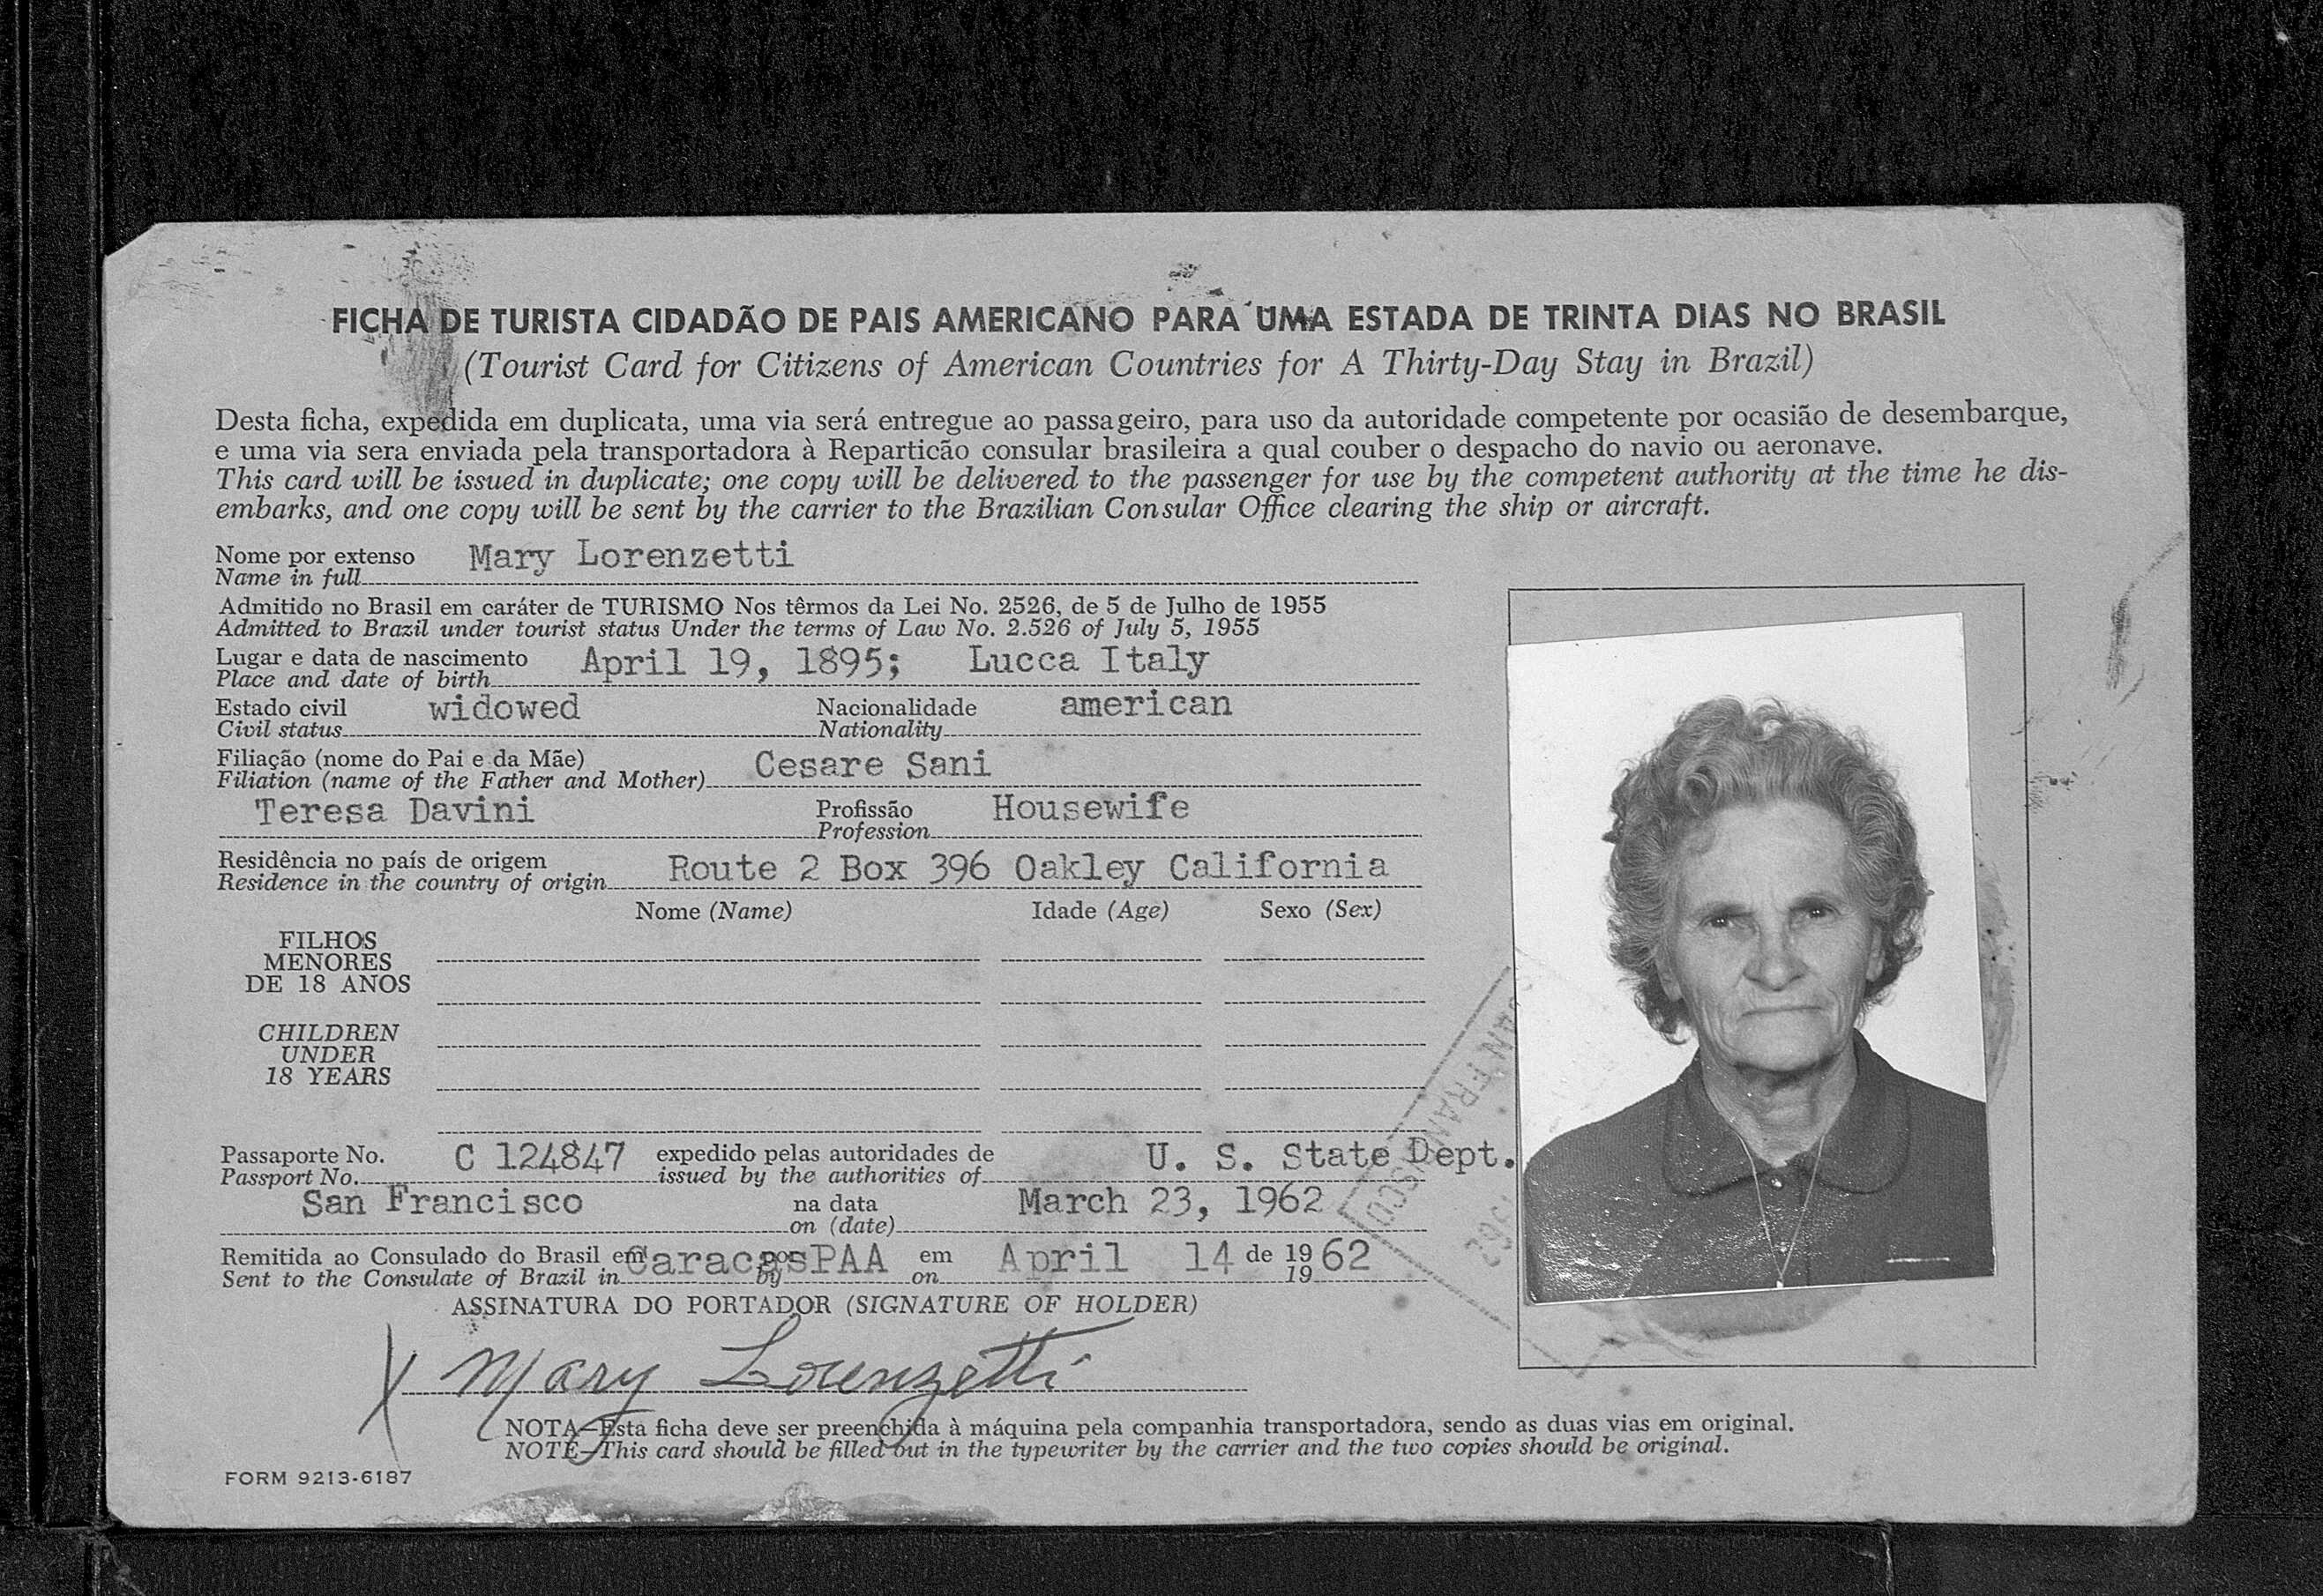 FICHA DE TURISTA CIDADÃO DE PAIS AMERICANO PARA UMA ESTADA DE TRINTA DIAS NO BRASIL
(Tourist Card for Citizens of American Countries for A Thirty-Day Stay in Brazil)
Desta ficha, expedida em duplicata, uma via será entregue ao passageiro, para uso da autoridade competente por ocasião de desembarque,
e uma via sera enviada pela transportadora à Reparticão consular brasileira a qual couber o despacho do navio ou aeronave.
This card will be issued in duplicate; one copy will be delivered to the passenger for use by the competent authority at the time he dis-
embarks, and one copy will be sent by the carrier to the Brazilian Consular Office clearing the ship or aircraft.
Nome por extenso Mary Lorenzetti
Name in full
Admitido no Brasil em caráter de TURISMO Nos têrmos da Lei No. 2526, de 5 de Julho de 1955
Admitted to Brazil under tourist status Under the terms of Law No. 2.526 of July 5, 1955
Lugar e data de nascimento April 19, 1895; Lucca Italy
Place and date of birth
Estado civil widowed Nacionalidade american
Civil status Nationality
Filiação (nome do Pai e da Mãe) Cesare Sani
Filiation (name of the Father and Mother)
Teresa Davini Profissão Housewife
Profession
Residência no país de origem Route 2 Box 396 Oakley California
Residence in the country of origin
Nome (Name) Idade (Age) Sexo (Sex)
FILHOS
MENORES
DE 18 ANOS
CHILDREN
UNDER
18 YEARS
Passaporte No. C 124847 expedido pelas autoridades de U. S. State Dept.
Passport No. issued by the authorities of
San Francisco na data March 23, 1962
on (date)
Remitida ao Consulado do Brasil em Caracas por PAA em April 14 de 19 62
Sent to the Consulate of Brazil in by on 19
ASSINATURA DO PORTADOR (SIGNATURE OF HOLDER)
X Mary Lorenzetti
NOTA—Esta ficha deve ser preenchida à máquina pela companhia transportadora, sendo as duas vias em original.
NOTE—This card should be filled out in the typewriter by the carrier and the two copies should be original.
FORM 9213-6187
SAN FRANCISCO
1962